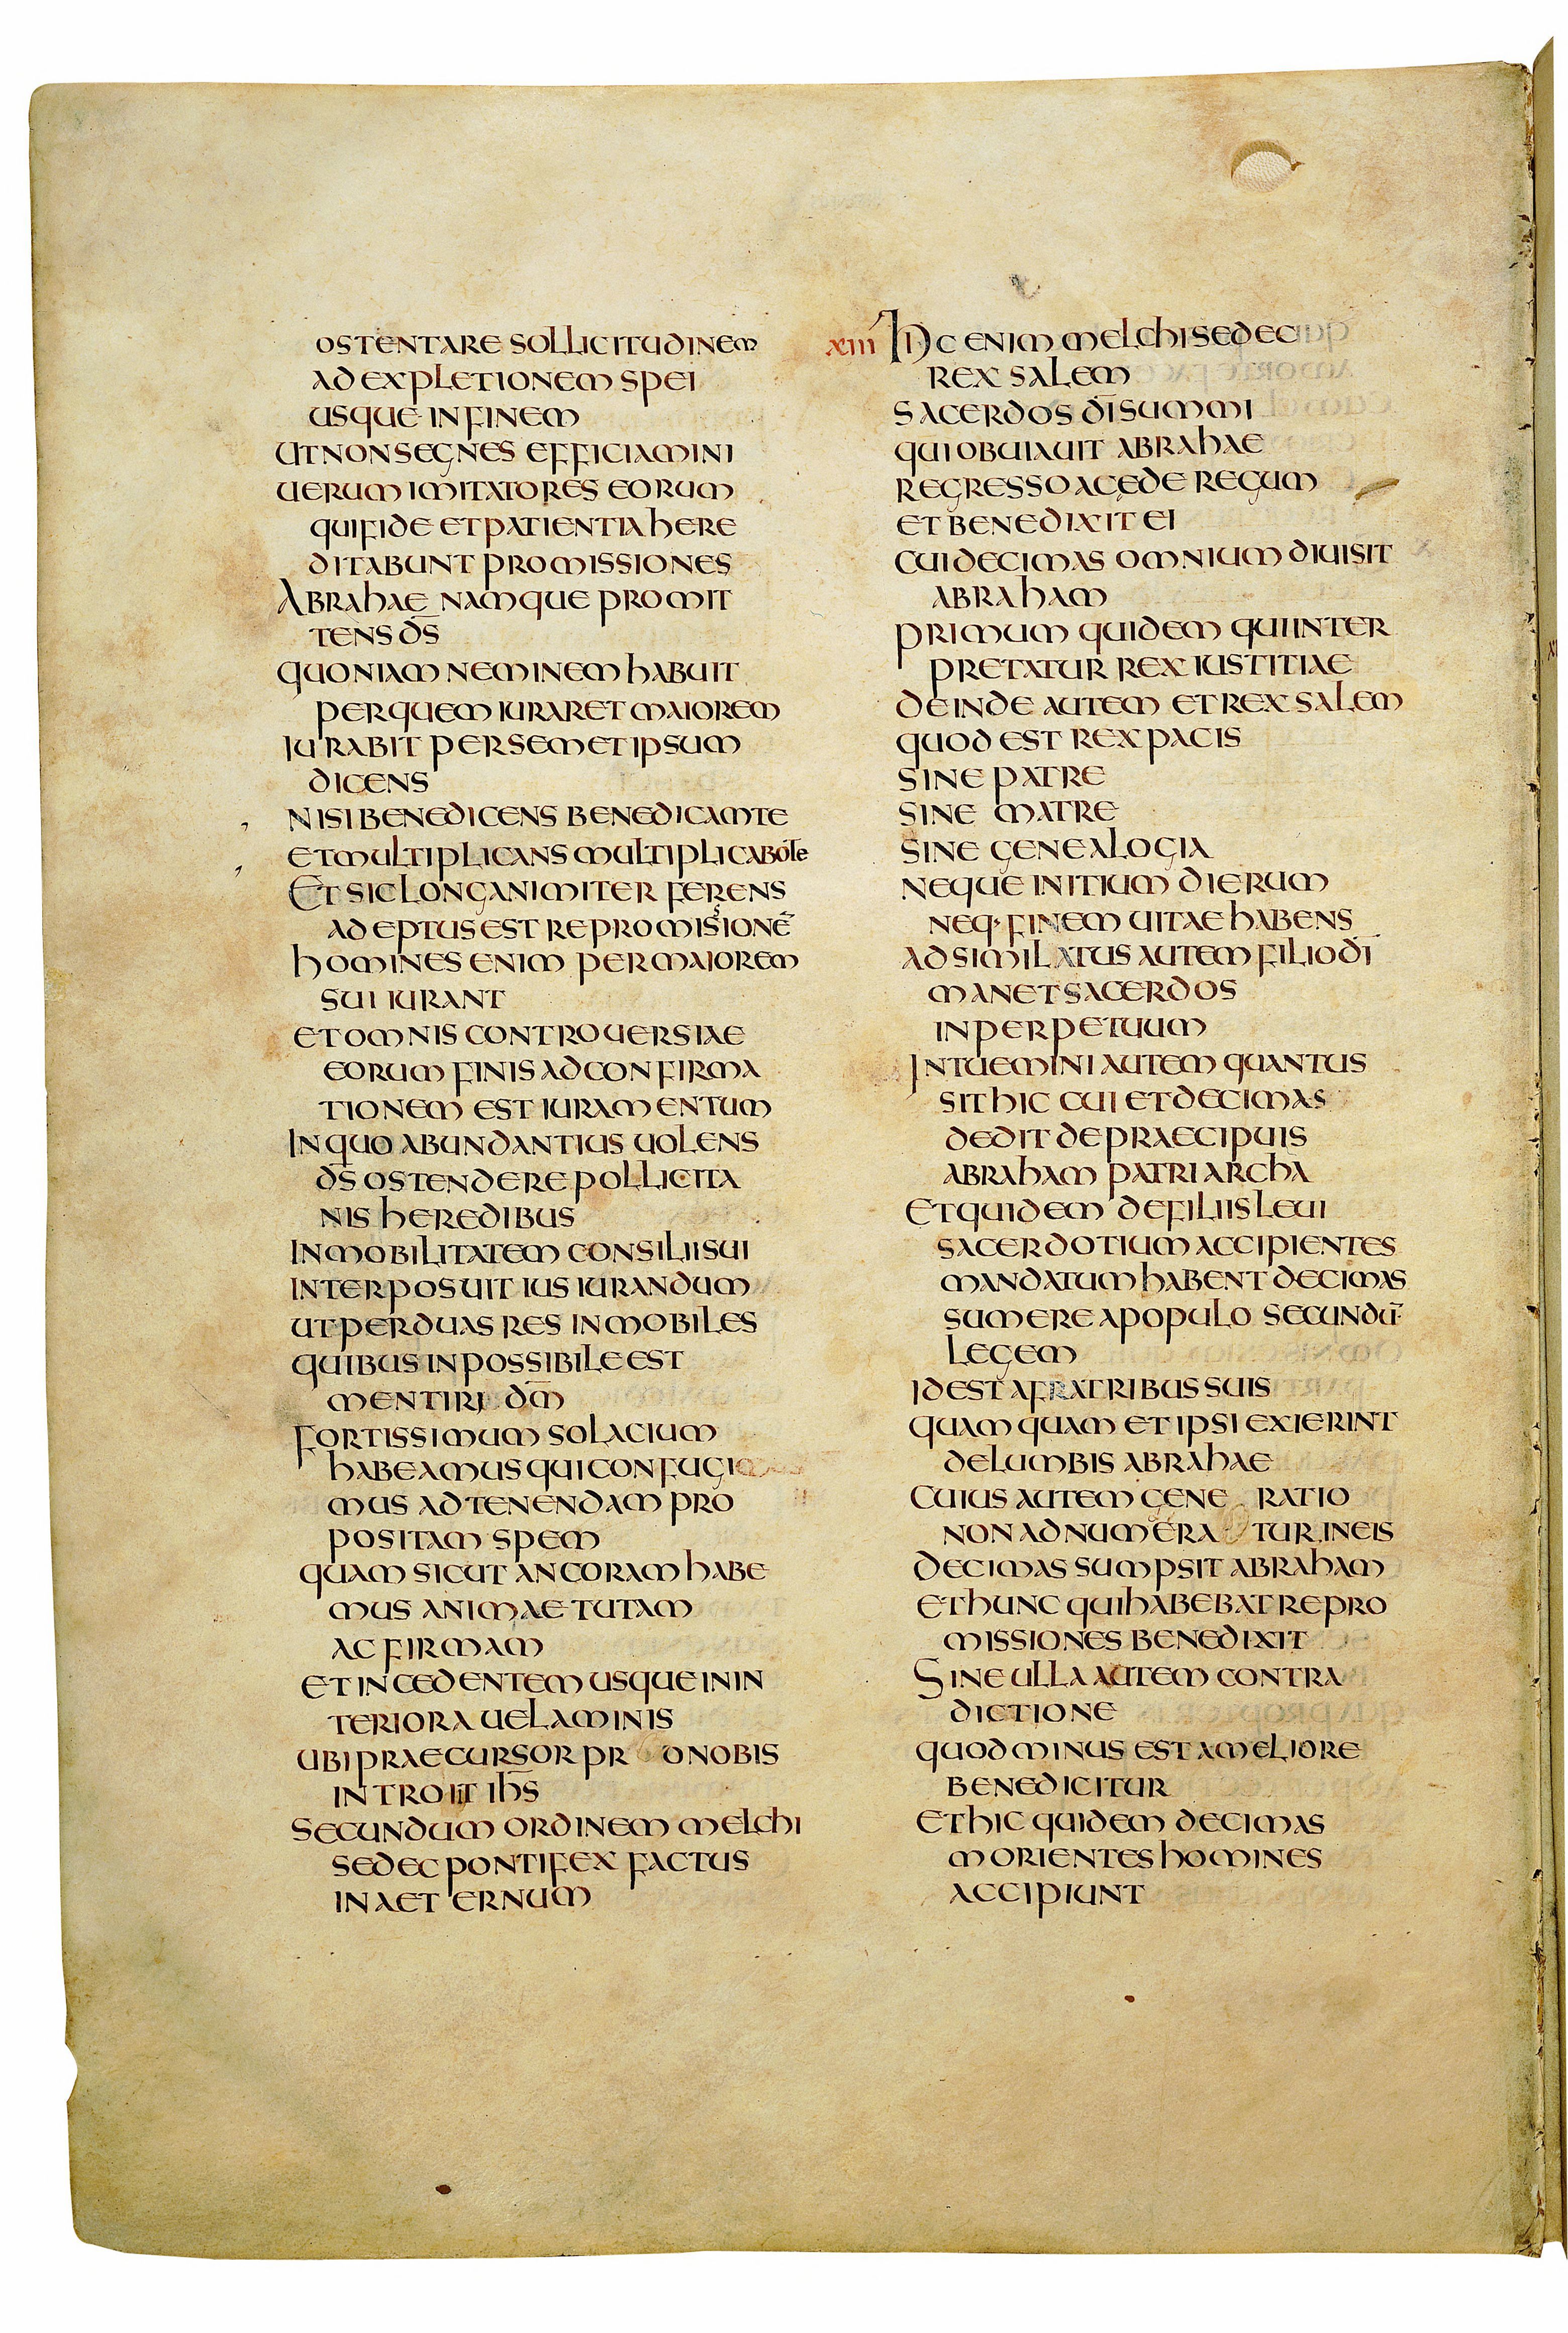 OSTENTARE SOLLICITUDINEM
AD EXPLETIONEM SPEI
USQUE IN FINEM
UT NON SEGNES EFFICIAMINI
UERUM IMITATORES EORUM
QUI FIDE ET PATIENTIA HERE
DITABUNT PROMISSIONES
ABRAHAE NAMQUE PROMIT
TENS D̅S̅
QUONIAM NEMINEM HABUIT
PER QUEM IURARET MAIOREM
IURABIT PER SEMETIPSUM
DICENS
NISI BENEDICENS BENEDICAM TE
ET MULTIPLICANS MULTIPLICABO TE
ET SIC LONGANIMITER FERENS
ADEPTUS EST REPROMISIONE̅
HOMINES ENIM PER MAIOREM
SUI IURANT
ET OMNIS CONTROUERSIAE
EORUM FINIS AD CONFIRMA
TIONEM EST IURAMENTUM
IN QUO ABUNDANTIUS UOLENS
D̅S̅ OSTENDERE POLLICITA
NIS HEREDIBUS
INMOBILITATEM CONSILII SUI
INTERPOSUIT IUSIURANDUM
UT PER DUAS RES INMOBILES
QUIBUS INPOSSIBILE EST
MENTIRI D̅M̅
FORTISSIMUM SOLACIUM
HABEAMUS QUI CONFUGI
MUS AD TENENDAM PRO
POSITAM SPEM
QUAM SICUT ANCORAM HABE
MUS ANIMAE TUTAM
AC FIRMAM
ET INCEDENTEM USQUE IN IN
TERIORA UELAMINIS
UBI PRAECURSOR PRO NOBIS
INTROIIT IH̅S̅
SECUNDUM ORDINEM MELCHI
SEDEC PONTIFEX FACTUS
IN AETERNUM
XIII HIC ENIM MELCHISEDEC
REX SALEM
SACERDOS D̅I̅ SUMMI
QUI OBUIAUIT ABRAHAE
REGRESSO A CEDE REGUM
ET BENEDIXIT EI
CUI DECIMAS OMNIUM DIUISIT
ABRAHAM
PRIMUM QUIDEM QUI INTER
PRETATUR REX IUSTITIAE
DEINDE AUTEM ET REX SALEM
QUOD EST REX PACIS
SINE PATRE
SINE MATRE
SINE GENEALOGIA
NEQUE INITIUM DIERUM
NEQ· FINEM UITAE HABENS
ADSIMILATUS AUTEM FILIO D̅I̅
MANET SACERDOS
IN PERPETUUM
INTUEMINI AUTEM QUANTUS
SIT HIC CUI ET DECIMAS
DEDIT DE PRAECIPUIS
ABRAHAM PATRIARCHA
ET QUIDEM DE FILIIS LEUI
SACERDOTIUM ACCIPIENTES
MANDATUM HABENT DECIMAS
SUMERE A POPULO SECUNDU̅
LEGEM
ID EST A FRATRIBUS SUIS
QUAMQUAM ET IPSI EXIERINT
DE LUMBIS ABRAHAE
CUIUS AUTEM GENERATIO
NON ADNUMERATUR IN EIS
DECIMAS SUMPSIT ABRAHAM
ET HUNC QUI HABEBAT REPRO
MISSIONES BENEDIXIT
SINE ULLA AUTEM CONTRA
DICTIONE
QUOD MINUS EST A MELIORE
BENEDICITUR
ET HIC QUIDEM DECIMAS
MORIENTES HOMINES
ACCIPIUNT